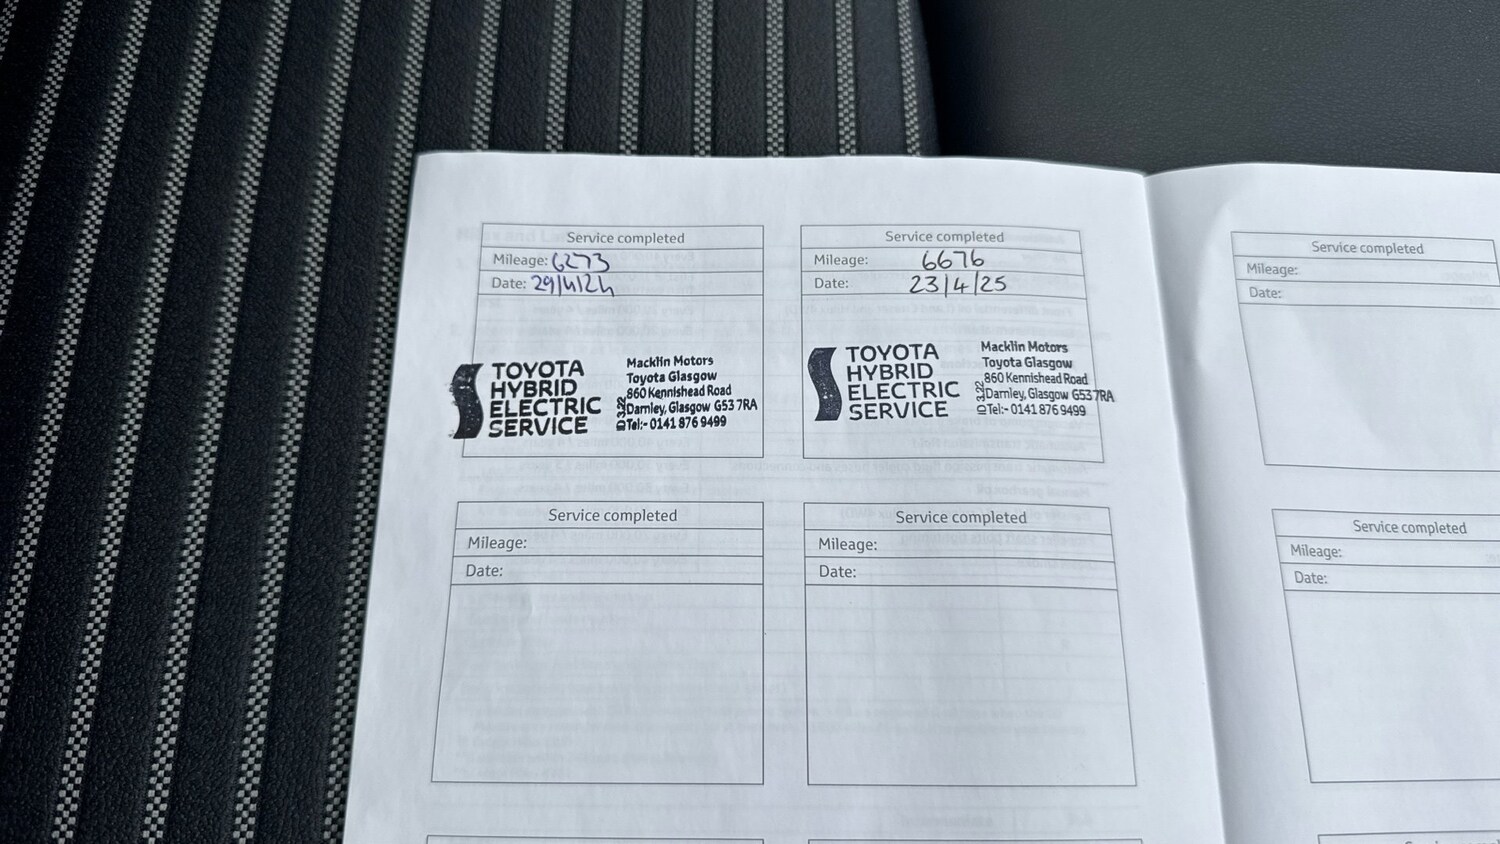 Service completed
Mileage: 6273
Date: 29/4/24
TOYOTA
HYBRID
ELECTRIC
SERVICE
Macklin Motors
Toyota Glasgow
860 Kennishead Road
Darnley, Glasgow G53 7RA
Tel:- 0141 876 9499
Service completed
Mileage: 6676
Date: 23/4/25
TOYOTA
HYBRID
ELECTRIC
SERVICE
Macklin Motors
Toyota Glasgow
860 Kennishead Road
Darnley, Glasgow G53 7RA
Tel:- 0141 876 9499
Service completed
Mileage:
Date:
Service completed
Mileage:
Date:
Service completed
Mileage:
Date:
Service completed
Mileage:
Date: